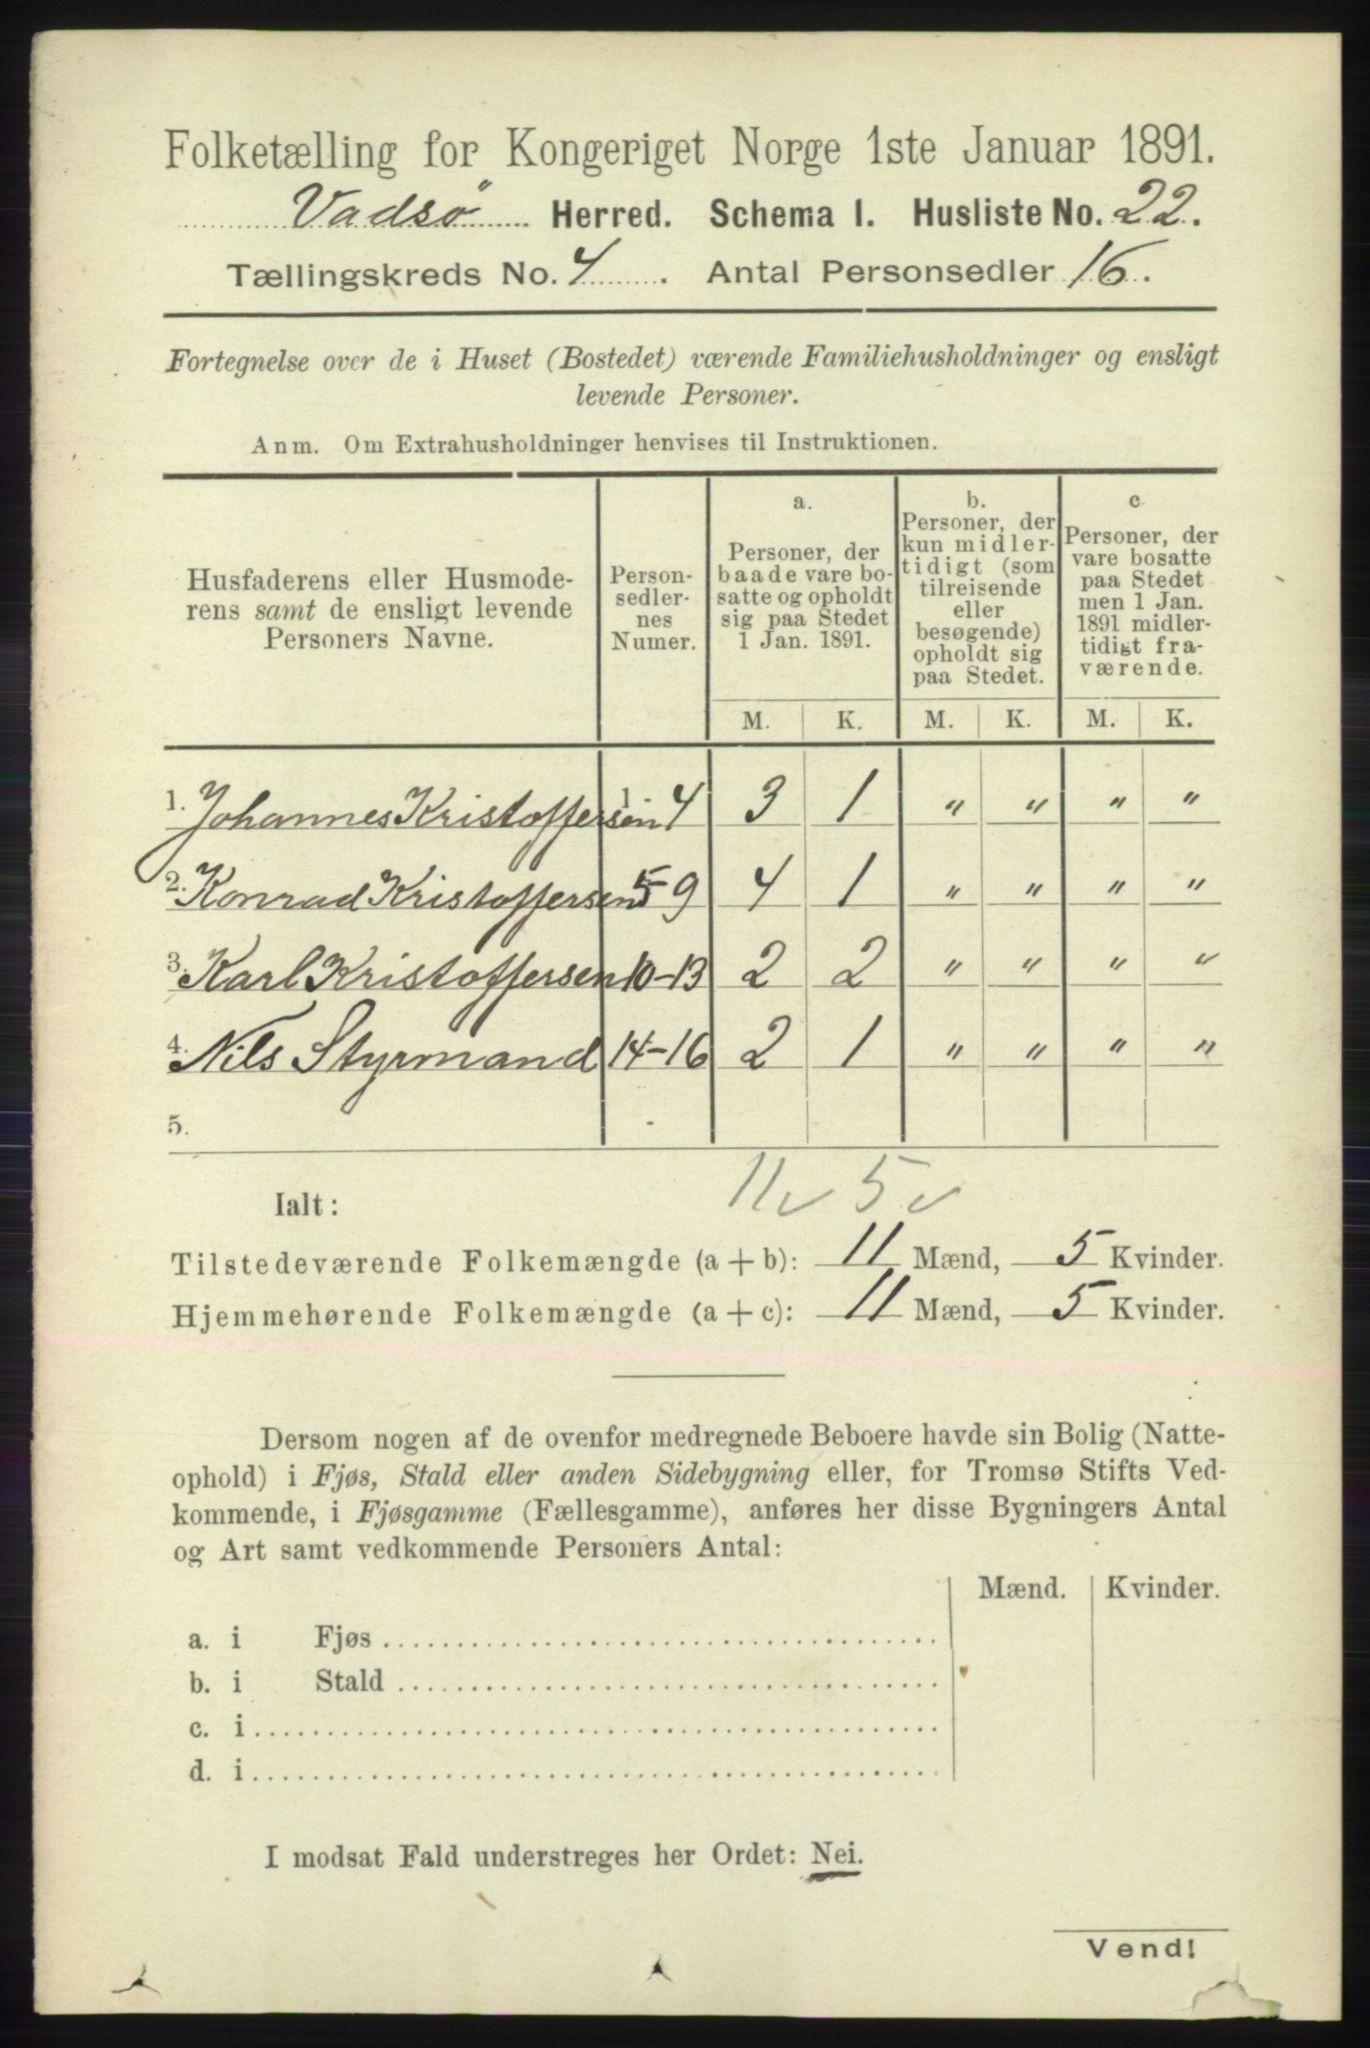 Folketælling for Kongeriget Norge 1ste Januar 1891.
Vadsø Herred. Schema I. Husliste No. 22.
Tællingskreds No. 4. Antal Personsedler 16.
Fortegnelse over de i Huset (Bostedet) værende Familiehusholdninger og ensligt
levende Personer.
Anm. Om Extrahusholdninger henvises til Instruktionen.
Husfaderens eller Husmode-
rens samt de ensligt levende
Personers Navne.
Person-
sedler-
nes
Numer.
a.
Personer, der
baade vare bo-
satte og opholdt
sig paa Stedet
1 Jan. 1891.
b.
Personer, der
kun midler-
tidigt (som
tilreisende
eller
besøgende)
opholdt sig
paa Stedet.
c
Personer, der
vare bosatte
paa Stedet
men 1 Jan.
1891 midler-
tidigt fra-
værende.
M. K. M. K. M. K.
1. Johannes Kristoffersen 1-4 3 1 " " " "
2. Konrad Kristoffersen 5-9 4 1 " " " "
3. Karl Kristoffersen 10-13 2 2 " " " "
4. Nils Styrmand 14-16 2 1 " " " "
5.
11 v 5 v
Ialt:
Tilstedeværende Folkemængde (a + b): 11 Mænd, 5 Kvinder.
Hjemmehørende Folkemængde (a + c): 11 Mænd, 5 Kvinder.
Dersom nogen af de ovenfor medregnede Beboere havde sin Bolig (Natte-
ophold) i Fjøs, Stald eller anden Sidebygning eller, for Tromsø Stifts Ved-
kommende, i Fjøsgamme (Fællesgamme), anføres her disse Bygningers Antal
og Art samt vedkommende Personers Antal:
Mænd. Kvinder.
a. i Fjøs
b. i Stald
c. i
d. i
I modsat Fald understreges her Ordet: Nei.
Vend!